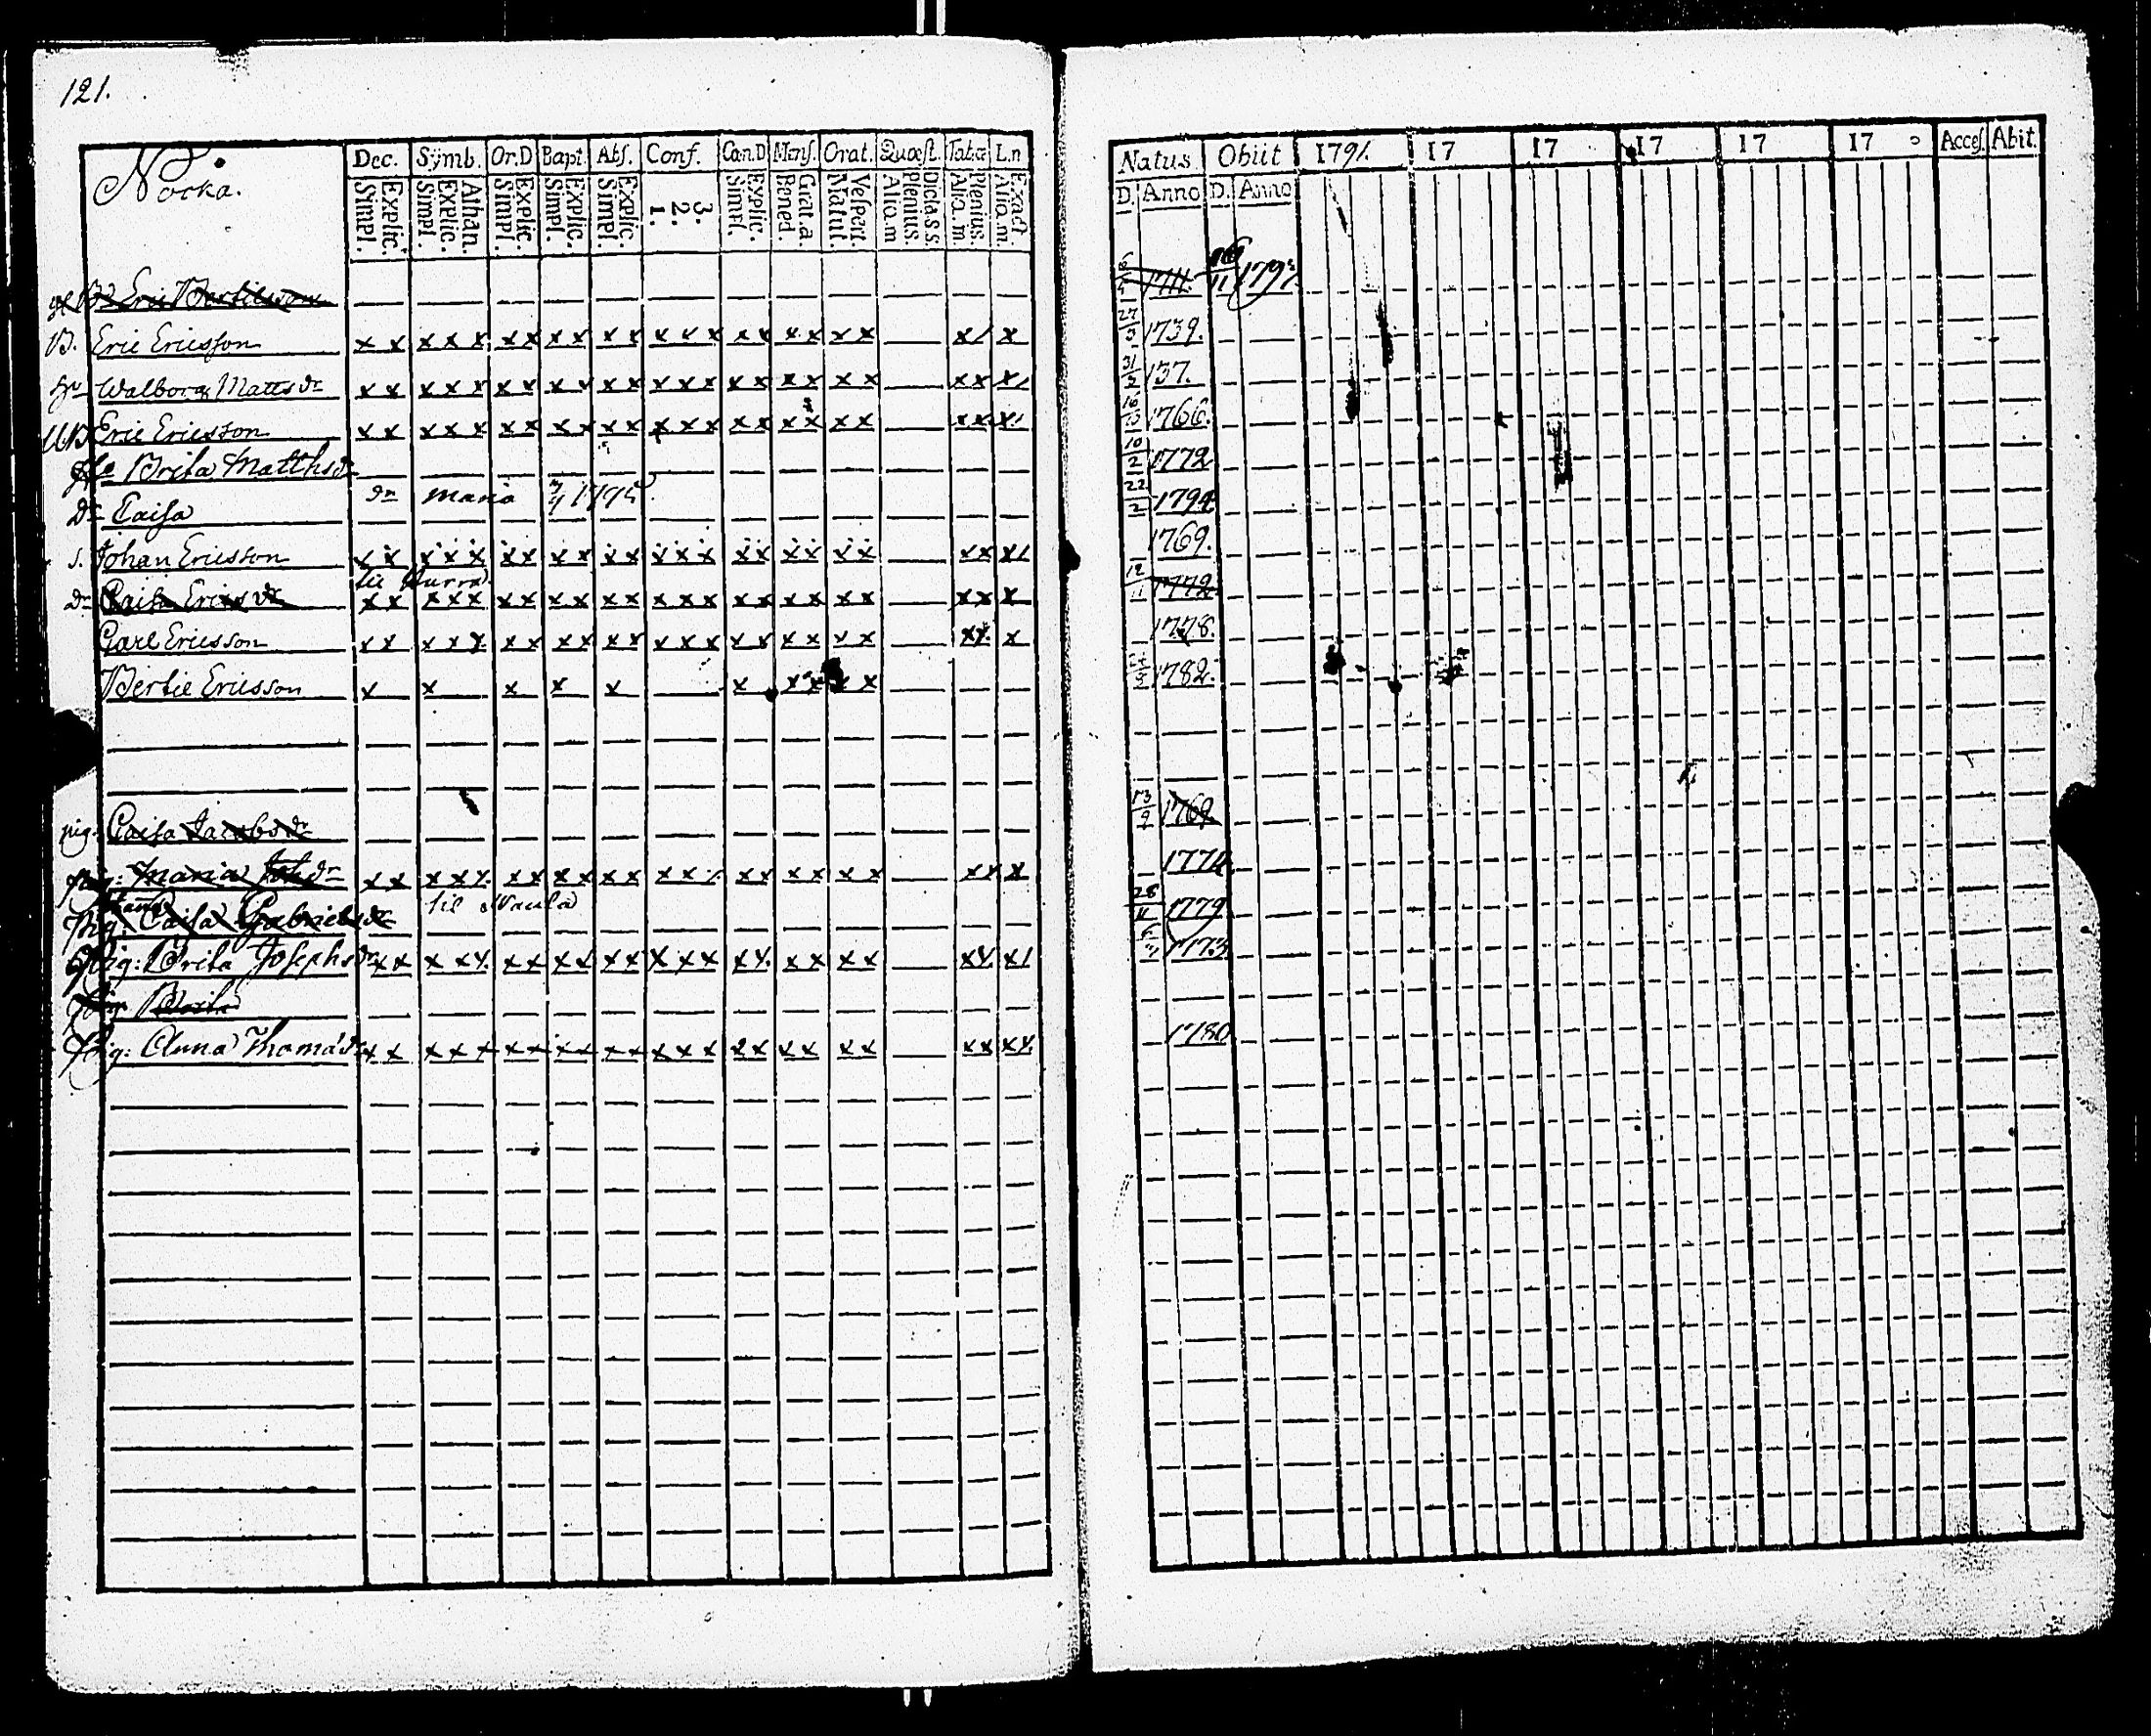 121.
Nocka.
Dec. Symb. Or.D Bapt. Abs. Conf. Can.D Mens. Orat. Quæst. Tabæ L.n
Simpl. Explic. Simpl. Explic. Athan. Simpl. Explic. Simpl. Explic. Simpl. Explic. 1. 2. 3. Simpl. Explic. Bened. Grat.a. Matut. Vespert. Aliq.m Plenius. Dicta S.S. Aliq.m. Plenius. Aliq.m. Exact.
Natus Obiit 1791. 17 17 17 17 17 Acces. Abit.
D. Anno D. Anno
Eric Bertilsson 1711. 11 179
B. Eric Ericsson x x x x x x x x x x x x x x x x x x x x x / x 27/3 1739.
Hu Walborg Matts dr x x x x x x x x x x x x x x x x x x x x x x / 31/3 137.
Eric Ericsson x x x x x x x x x x x x x x x x x x x x x x / 16/10 1766.
Brita Matths dr 10/2 1772
dr Maria 1795
Dr Caisa 22/2 1794.
s. Johan Ericsson x x x x x x x x x x x x x x x x x x x x x x / 1769.
til
Dr Caisa Erics dr x x x x x x x x x x x x x x x x x x x x x x 12/11 1772
Carl Ericsson x x x x x x x x x x x x x x x x x x x x x x 1778.
Bertil Ericsson x x x x x x x x x x 1782.
pig. Caisa Jacobs dr 13/9 1769
pig: Maria Joh dr x x x x x x x x x x x x x x x x x x x x x x 1774
til Naula
Pig. Caisa Gabriels dr 28/11 1779
Pig: Brita Josephs dr x x x x x x x x x x x x x x x x x x x x x x / 1773
Pig Brita
Pig: Anna Thomas dr x x x x x x x x x x x x x x x x x x x x x x x 1780